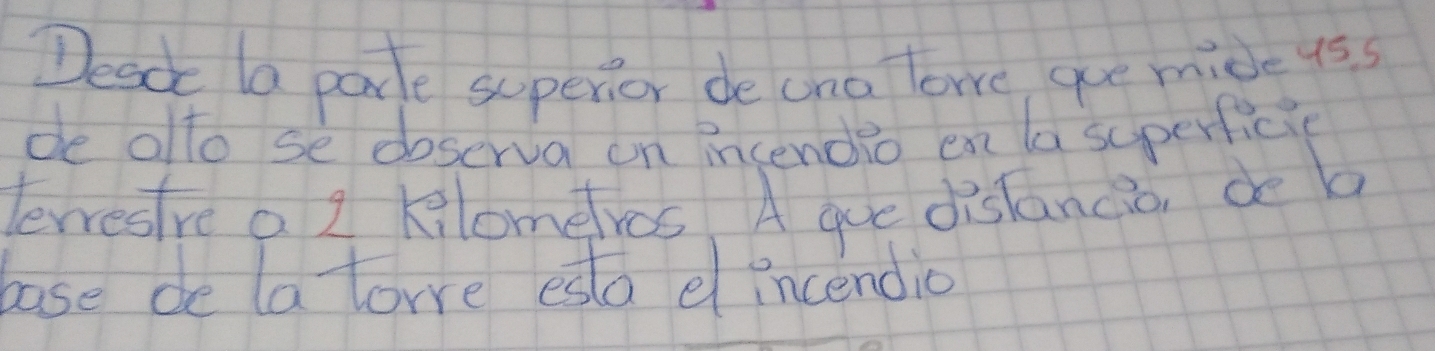 Desde la parte superior de una Torre, que mide 45.5
de alto se observa un incendio en la superficie
terrestre a 2 Kilometros, A que distancia, de la
base de la torre esta el incendio